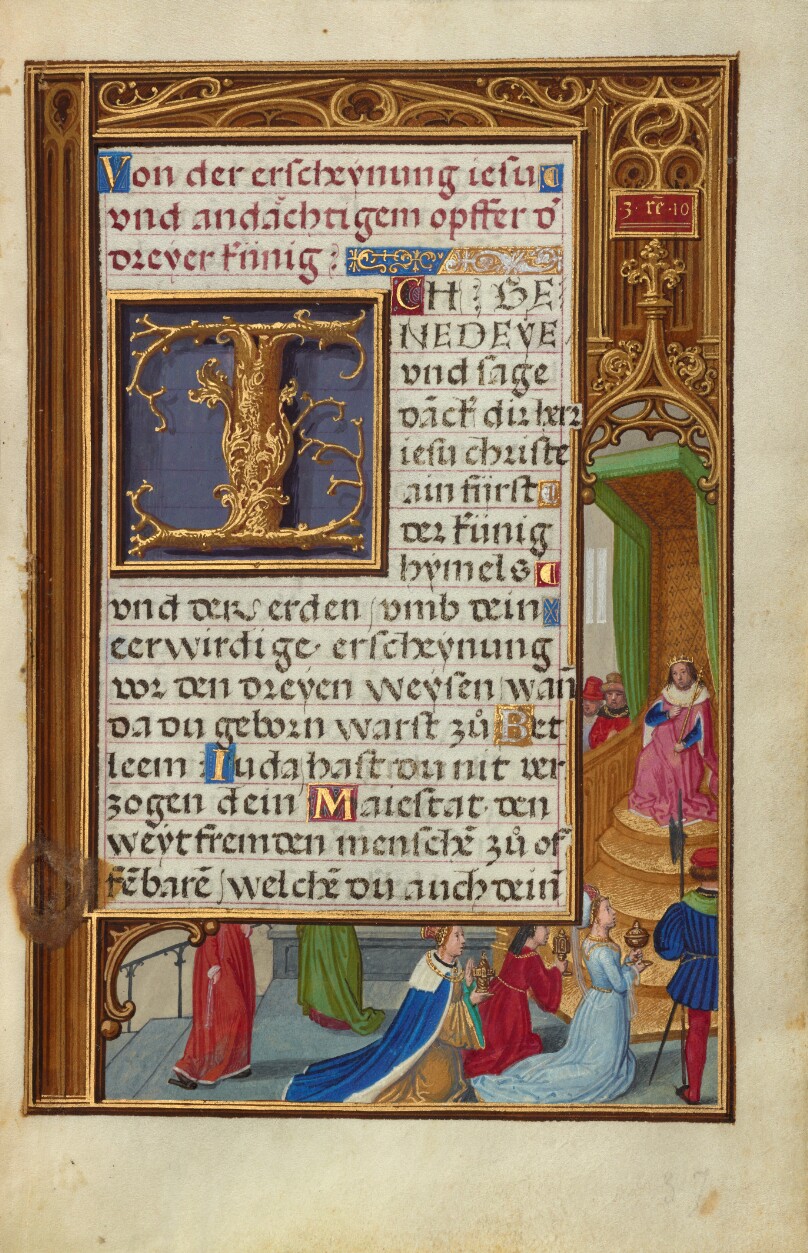 Von der erscheynung iesu
vnd andächtigem opffer d'
dreyer künig :
ICH : BE
NEDEYE
vnd sage
dāck dir herr
iesu christe
ain fürst
der künig
hymels
vnd der erden / vmb dein
eerwirdige erscheynung
vor den dreyen weysen / wañ
da du geborn warst zů Bet
leem Iuda hast du nit ver
zogen dein Maiestat den
weyt fremden menschē zů of
fēbarē / welchē du auch dein
·3· rē ·10
37